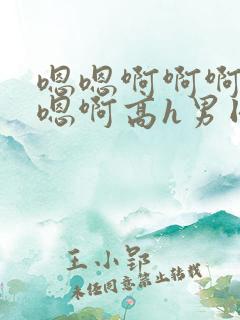 嗯嗯啊啊啊
嗯啊高h男
王小郢
未经同意禁止转载